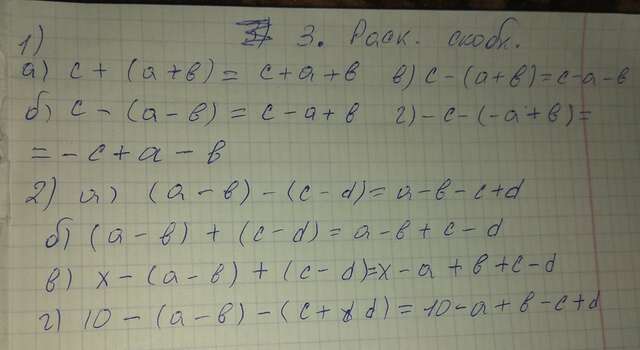 1) 3. Раск. скобк.
а) c + (a + в) = c + a + в в) c - (a + в) = c - a - в
б) c - (a - в) = c - a + в г) - c - (-a + в) =
= - c + a - в
2) а) (a - в) - (c - d) = a - в - c + d
б) (a - в) + (c - d) = a - в + c - d
в) x - (a - в) + (c - d) = x - a + в + c - d
г) 10 - (a - в) - (c + d) = 10 - a + в - c + d